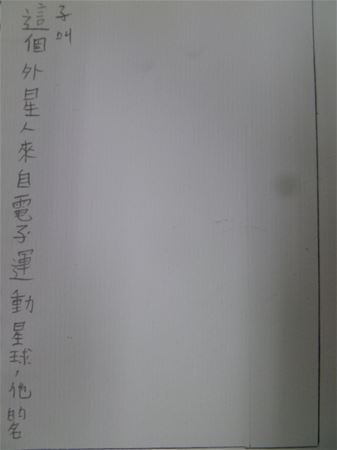 這個外星人來自電子運動星球，他的名
子叫